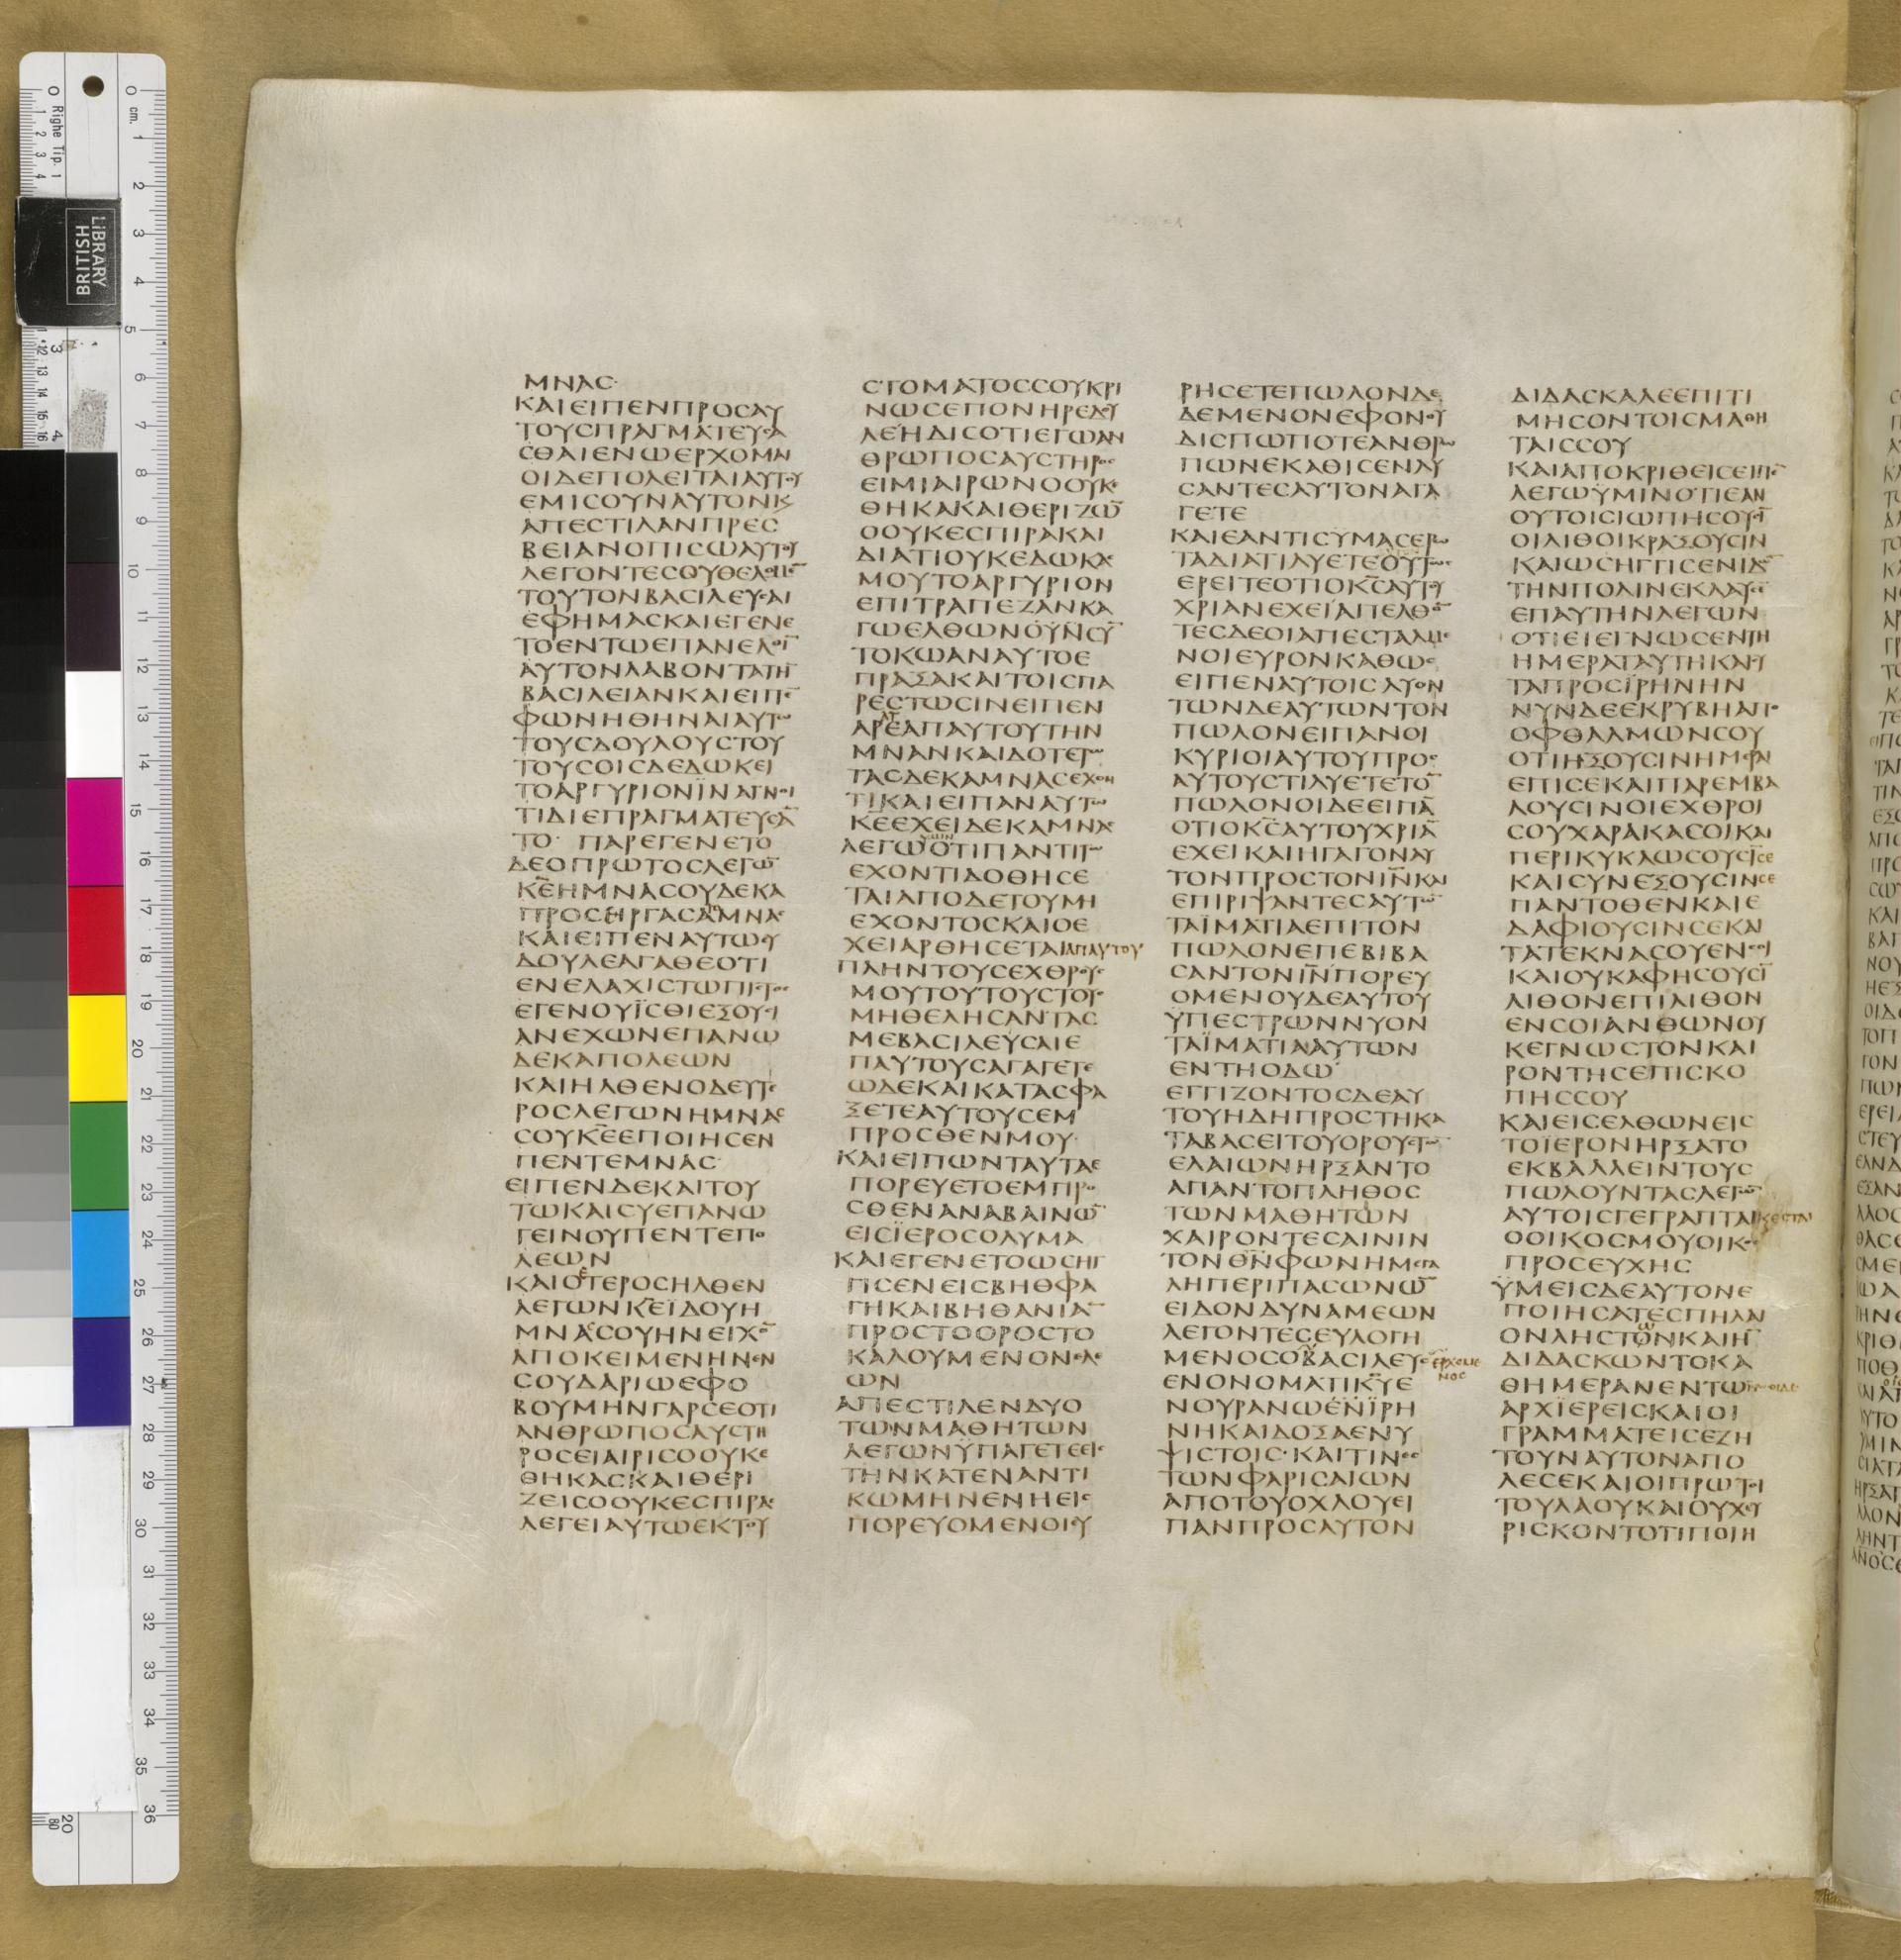 ΜΝΑC·
ΚΑΙΕΙΠΕΝΠΡΟCΑΥ
ΤΟΥCΠΡΑΓΜΑΤΕΥCΑ
CΘΑΙΕΝΩΕΡΧΟΜΑΙ
ΟΙΔΕΠΟΛΕΙΤΑΙΑΥΤΟΥ
ΕΜΙCΟΥΝΑΥΤΟΝΚ
ΑΠΕCΤΙΛΑΝΠΡΕC
ΒΕΙΑΝΟΠΙCΩΑΥΤΟΥ
ΛΕΓΟΝΤΕCΟΥΘΕΛΟΜΕ̅
ΤΟΥΤΟΝΒΑCΙΛΕΥCΑΙ
ΕΦΗΜΑCΚΑΙΕΓΕΝΕ
ΤΟΕΝΤΩΕΠΑΝΕΛΘΙ̅
ΑΥΤΟΝΛΑΒΟΝΤΑΤΗ̅
ΒΑCΙΛΕΙΑΝΚΑΙΕΙΠΕ̅
ΦΩΝΗΘΗΝΑΙΑΥΤΩ
ΤΟΥCΔΟΥΛΟΥCΤΟΥ
ΤΟΥCΟΙCΔΕΔΩΚΕΙ
ΤΟΑΡΓΥΡΙΟΝΪΝΑΓΝΟΙ
ΤΙΔΙΕΠΡΑΓΜΑΤΕΥCΑ̅
ΤΟ· ΠΑΡΕΓΕΝΕΤΟ
ΔΕΟΠΡΩΤΟCΛΕΓΩ̅
Κ̅Ε̅ΗΜΝΑCΟΥΔΕΚΑ
ΠΡΟCΗΡΓΑCΑΜΝΑC
ΚΑΙΕΙΠΕΝΑΥΤΩΕΥ
ΔΟΥΛΕΑΓΑΘΕΟΤΙ
ΕΝΕΛΑΧΙCΤΩΠΙCΤΟC
ΕΓΕΝΟΥΪCΘΙΕΞΟΥCΙ
ΑΝΕΧΩΝΕΠΑΝΩ
ΔΕΚΑΠΟΛΕΩΝ
ΚΑΙΗΛΘΕΝΟΔΕΥΤΕ
ΡΟCΛΕΓΩΝΗΜΝΑC
CΟΥΚ̅Ε̅ΕΠΟΙΗCΕΝ
ΠΕΝΤΕΜΝΑC·
ΕΙΠΕΝΔΕΚΑΙΤΟΥ
ΤΩΚΑΙCΥΕΠΑΝΩ
ΓΕΙΝΟΥΠΕΝΤΕΠΟ
ΛΕΩΝ
ΚΑΙΟΕΤΕΡΟCΗΛΘΕΝ
ΛΕΓΩΝΚ̅Ε̅ΪΔΟΥΗ
ΜΝΑCΟΥΗΝΕΙΧΟ̅
ΑΠΟΚΕΙΜΕΝΗΝΕΝ
CΟΥΔΑΡΙΩΕΦΟ
ΒΟΥΜΗΝΓΑΡCΕΟΤΙ
ΑΝΘΡΩΠΟCΑΥCΤΗ
ΡΟCΕΙΑΙΡΙCΟΟΥΚΕ
ΘΗΚΑCΚΑΙΘΕΡΙ
ΖΕΙCΟΟΥΚΕCΠΙΡΑC
ΛΕΓΕΙΑΥΤΩΕΚΤΟΥ
CΤΟΜΑΤΟCCΟΥΚΡΙ
ΝΩCΕΠΟΝΗΡΕΔΟΥ
ΛΕΗΔΙCΟΤΙΕΓΩΑΝ
ΘΡΩΠΟCΑΥCΤΗΡΟC
ΕΙΜΙΑΙΡΩΝΟΟΥΚΕ
ΘΗΚΑΚΑΙΘΕΡΙΖΩ̅
ΟΟΥΚΕCΠΙΡΑΚΑΙ
ΔΙΑΤΙΟΥΚΕΔΩΚΑC
ΜΟΥΤΟΑΡΓΥΡΙΟΝ
ΕΠΙΤΡΑΠΕΖΑΝΚΑ
ΓΩΕΛΘΩΝΟΥΝCΥ̅
ΤΟΚΩΑΝΑΥΤΟΕ
ΠΡΑΞΑΚΑΙΤΟΙCΠΑ
ΡΕCΤΩCΙΝΕΙΠΕΝ
ΑΡΑΤΕΑΠΑΥΤΟΥΤΗΝ
ΜΝΑΝΚΑΙΔΟΤΕΤΩ
ΤΑCΔΕΚΑΜΝΑCΕΧΟΝ
ΤΙΚΑΙΕΙΠΑΝΑΥΤΩ
Κ̅Ε̅ΕΧΕΙΔΕΚΑΜΝΑC
ΛΕΓΩΥΜΙΝΟΤΙΠΑΝΤΙΤΩ
ΕΧΟΝΤΙΔΟΘΗCΕ
ΤΑΙΑΠΟΔΕΤΟΥΜΗ
ΕΧΟΝΤΟCΚΑΙΟΕ
ΧΕΙΑΡΘΗCΕΤΑΙΑΠΑΥΤΟΥ
ΠΛΗΝΤΟΥCΕΧΘΡΟΥC
ΜΟΥΤΟΥΤΟΥCΤΟΥC
ΜΗΘΕΛΗCΑΝΤΑC
ΜΕΒΑCΙΛΕΥCΑΙΕ
ΠΑΥΤΟΥCΑΓΑΓΕΤΕ
ΩΔΕΚΑΙΚΑΤΑCΦΑ
ΞΕΤΕΑΥΤΟΥCΕΜ
ΠΡΟCΘΕΝΜΟΥ·
ΚΑΙΕΙΠΩΝΤΑΥΤΑΕ
ΠΟΡΕΥΕΤΟΕΜΠΡΟ
CΘΕΝΑΝΑΒΑΙΝΩ̅
ΕΙCΪΕΡΟCΟΛΥΜΑ
ΚΑΙΕΓΕΝΕΤΟΩCΗΓ
ΓΙCΕΝΕΙCΒΗΘΦΑ
ΓΗΚΑΙΒΗΘΑΝΙΑ̅
ΠΡΟCΤΟΟΡΟCΤΟ
ΚΑΛΟΥΜΕΝΟΝΕΛΕ
ΩΝ
ΑΠΕCΤΙΛΕΝΔΥΟ
ΤΩΝΜΑΘΗΤΩΝ
ΛΕΓΩΝΫΠΑΓΕΤΕΕΙC
ΤΗΝΚΑΤΕΝΑΝΤΙ
ΚΩΜΗΝΕΝΗΕΙC
ΠΟΡΕΥΟΜΕΝΟΙΕΥ
ΡΗCΕΤΕΠΩΛΟΝΔΕ
ΔΕΜΕΝΟΝΕΦΟΝΟΥ
ΔΙCΠΩΠΟΤΕΑΝΘΡΩ
ΠΩΝΕΚΑΘΙCΕΝΛΥ
CΑΝΤΕCΑΥΤΟΝΑΓΑ
ΓΕΤΕ
ΚΑΙΕΑΝΤΙCΥΜΑCΕΡΩ
ΤΑΔΙΑΤΙΛΥΕΤΕΟΥΤΩC
ΕΡΕΙΤΕΟΤΙΟΚ̅C̅ΑΥΤΟΥ
ΧΡΙΑΝΕΧΕΙΑΠΕΛΘΟ̅
ΤΕCΔΕΟΙΑΠΕCΤΑΛΜΕ
ΝΟΙΕΥΡΟΝΚΑΘΩC
ΕΙΠΕΝΑΥΤΟΙCΛΥΟΝ
ΤΩΝΔΕΑΥΤΩΝΤΟΝ
ΠΩΛΟΝΕΙΠΑΝΟΙ
ΚΥΡΙΟΙΑΥΤΟΥΠΡΟC
ΑΥΤΟΥCΤΙΛΥΕΤΕΤΟ̅
ΠΩΛΟΝΟΙΔΕΕΙΠΑ̅
ΟΤΙΟΚ̅C̅ΑΥΤΟΥΧΡΙΑ̅
ΕΧΕΙΚΑΙΗΓΑΓΟΝΑΥ
ΤΟΝΠΡΟCΤΟΝΙ̅Ν̅ΚΑΙ
ΕΠΙΡΙΨΑΝΤΕCΑΥΤΩ̅
ΤΑΪΜΑΤΙΑΕΠΙΤΟΝ
ΠΩΛΟΝΕΠΕΒΙΒΑ
CΑΝΤΟΝΙ̅Ν̅ΠΟΡΕΥ
ΟΜΕΝΟΥΔΕΑΥΤΟΥ
ΫΠΕCΤΡΩΝΝΥΟΝ
ΤΑΪΜΑΤΙΑΑΥΤΩΝ
ΕΝΤΗΟΔΩ·
ΕΓΓΙΖΟΝΤΟCΔΕΑΥ
ΤΟΥΗΔΗΠΡΟCΤΗΚΑ
ΤΑΒΑCΕΙΤΟΥΟΡΟΥCΤΩ̅
ΕΛΑΙΩΝΗΡΞΑΝΤΟ
ΑΠΑΝΤΟΠΛΗΘΟC
ΤΩΝΜΑΘΗΤΩΝ
ΧΑΙΡΟΝΤΕCΑΙΝΙΝ
ΤΟΝΘ̅Ν̅ΦΩΝΗΜΕΓΑ
ΛΗΠΕΡΙΠΑCΩΝΩ̅
ΕΙΔΟΝΔΥΝΑΜΕΩΝ
ΛΕΓΟΝΤΕCΕΥΛΟΓΗ
ΜΕΝΟCΟΒΑCΙΛΕΥC ΕΡΧΟΜΕ
ΝΟC
ΕΝΟΝΟΜΑΤΙΚ̅Υ̅Ε
ΝΟΥΡΑΝΩΕΝΪΡΗ
ΝΗΚΑΙΔΟΞΑΕΝΥ
ΨΙCΤΟΙC·ΚΑΙΤΙΝΕC
ΤΩΝΦΑΡΙCΑΙΩΝ
ΑΠΟΤΟΥΟΧΛΟΥΕΙ
ΠΑΝΠΡΟCΑΥΤΟΝ
ΔΙΔΑCΚΑΛΕΕΠΙΤΙ
ΜΗCΟΝΤΟΙCΜΑΘΗ
ΤΑΙCCΟΥ
ΚΑΙΑΠΟΚΡΙΘΕΙCΕΙΠΕ̅
ΛΕΓΩΫΜΙΝΟΤΙΕΑΝ
ΟΥΤΟΙCΙΩΠΗCΟΥCΙ̅
ΟΙΛΙΘΟΙΚΡΑΞΟΥCΙΝ
ΚΑΙΩCΗΓΓΙCΕΝΙΔΩ̅
ΤΗΝΠΟΛΙΝΕΚΛΑΥCΕ̅
ΕΠΑΥΤΗΝΛΕΓΩΝ
ΟΤΙΕΙΕΓΝΩCΕΝΤΗ
ΗΜΕΡΑΤΑΥΤΗΚΑΙCΥ
ΤΑΠΡΟCΪΡΗΝΗΝ
ΝΥΝΔΕΕΚΡΥΒΗΑΠΟ
ΟΦΘΑΛΜΩΝCΟΥ
ΟΤΙΗΞΟΥCΙΝΗΜΕΡΑΙ
ΕΠΙCΕΚΑΙΠΑΡΕΜΒΑ
ΛΟΥCΙΝΟΙΕΧΘΡΟΙ
CΟΥΧΑΡΑΚΑCΟΙΚΑΙ
ΠΕΡΙΚΥΚΛΩCΟΥCΙ̅CΕ
ΚΑΙCΥΝΕΞΟΥCΙΝCΕ
ΠΑΝΤΟΘΕΝΚΑΙΕ
ΔΑΦΙΟΥCΙΝCΕΚΑΙ
ΤΑΤΕΚΝΑCΟΥΕΝCΟΙ
ΚΑΙΟΥΚΑΦΗCΟΥCΙ̅
ΛΙΘΟΝΕΠΙΛΙΘΟΝ
ΕΝCΟΙΑΝΘΩΝΟΥ
ΚΕΓΝΩCΤΟΝΚΑΙ
ΡΟΝΤΗCΕΠΙCΚΟ
ΠΗCCΟΥ
ΚΑΙΕΙCΕΛΘΩΝΕΙC
ΤΟΪΕΡΟΝΗΡΞΑΤΟ
ΕΚΒΑΛΛΕΙΝΤΟΥC
ΠΩΛΟΥΝΤΑCΛΕΓΩ̅
ΑΥΤΟΙCΓΕΓΡΑΠΤΑΙ
ΟΟΙΚΟCΜΟΥΟΙΚΟC
ΠΡΟCΕΥΧΗC
ΫΜΕΙCΔΕΑΥΤΟΝΕ
ΠΟΙΗCΑΤΕCΠΗΛΑΙ
ΟΝΛΗCΤΩΝΚΑΙΗ̅
ΔΙΔΑCΚΩΝΤΟΚΑ
ΘΗΜΕΡΑΝΕΝΤΩ
ΑΡΧΪΕΡΕΙCΚΑΙΟΙ
ΓΡΑΜΜΑΤΕΙCΕΖΗ
ΤΟΥΝΑΥΤΟΝΑΠΟ
ΛΕCΕΚΑΙΟΙΠΡΩΤΟΙ
ΤΟΥΛΑΟΥΚΑΙΟΥΧΕΥ
ΡΙCΚΟΝΤΟΤΙΠΟΙΗ
BRITISH
LIBRARY